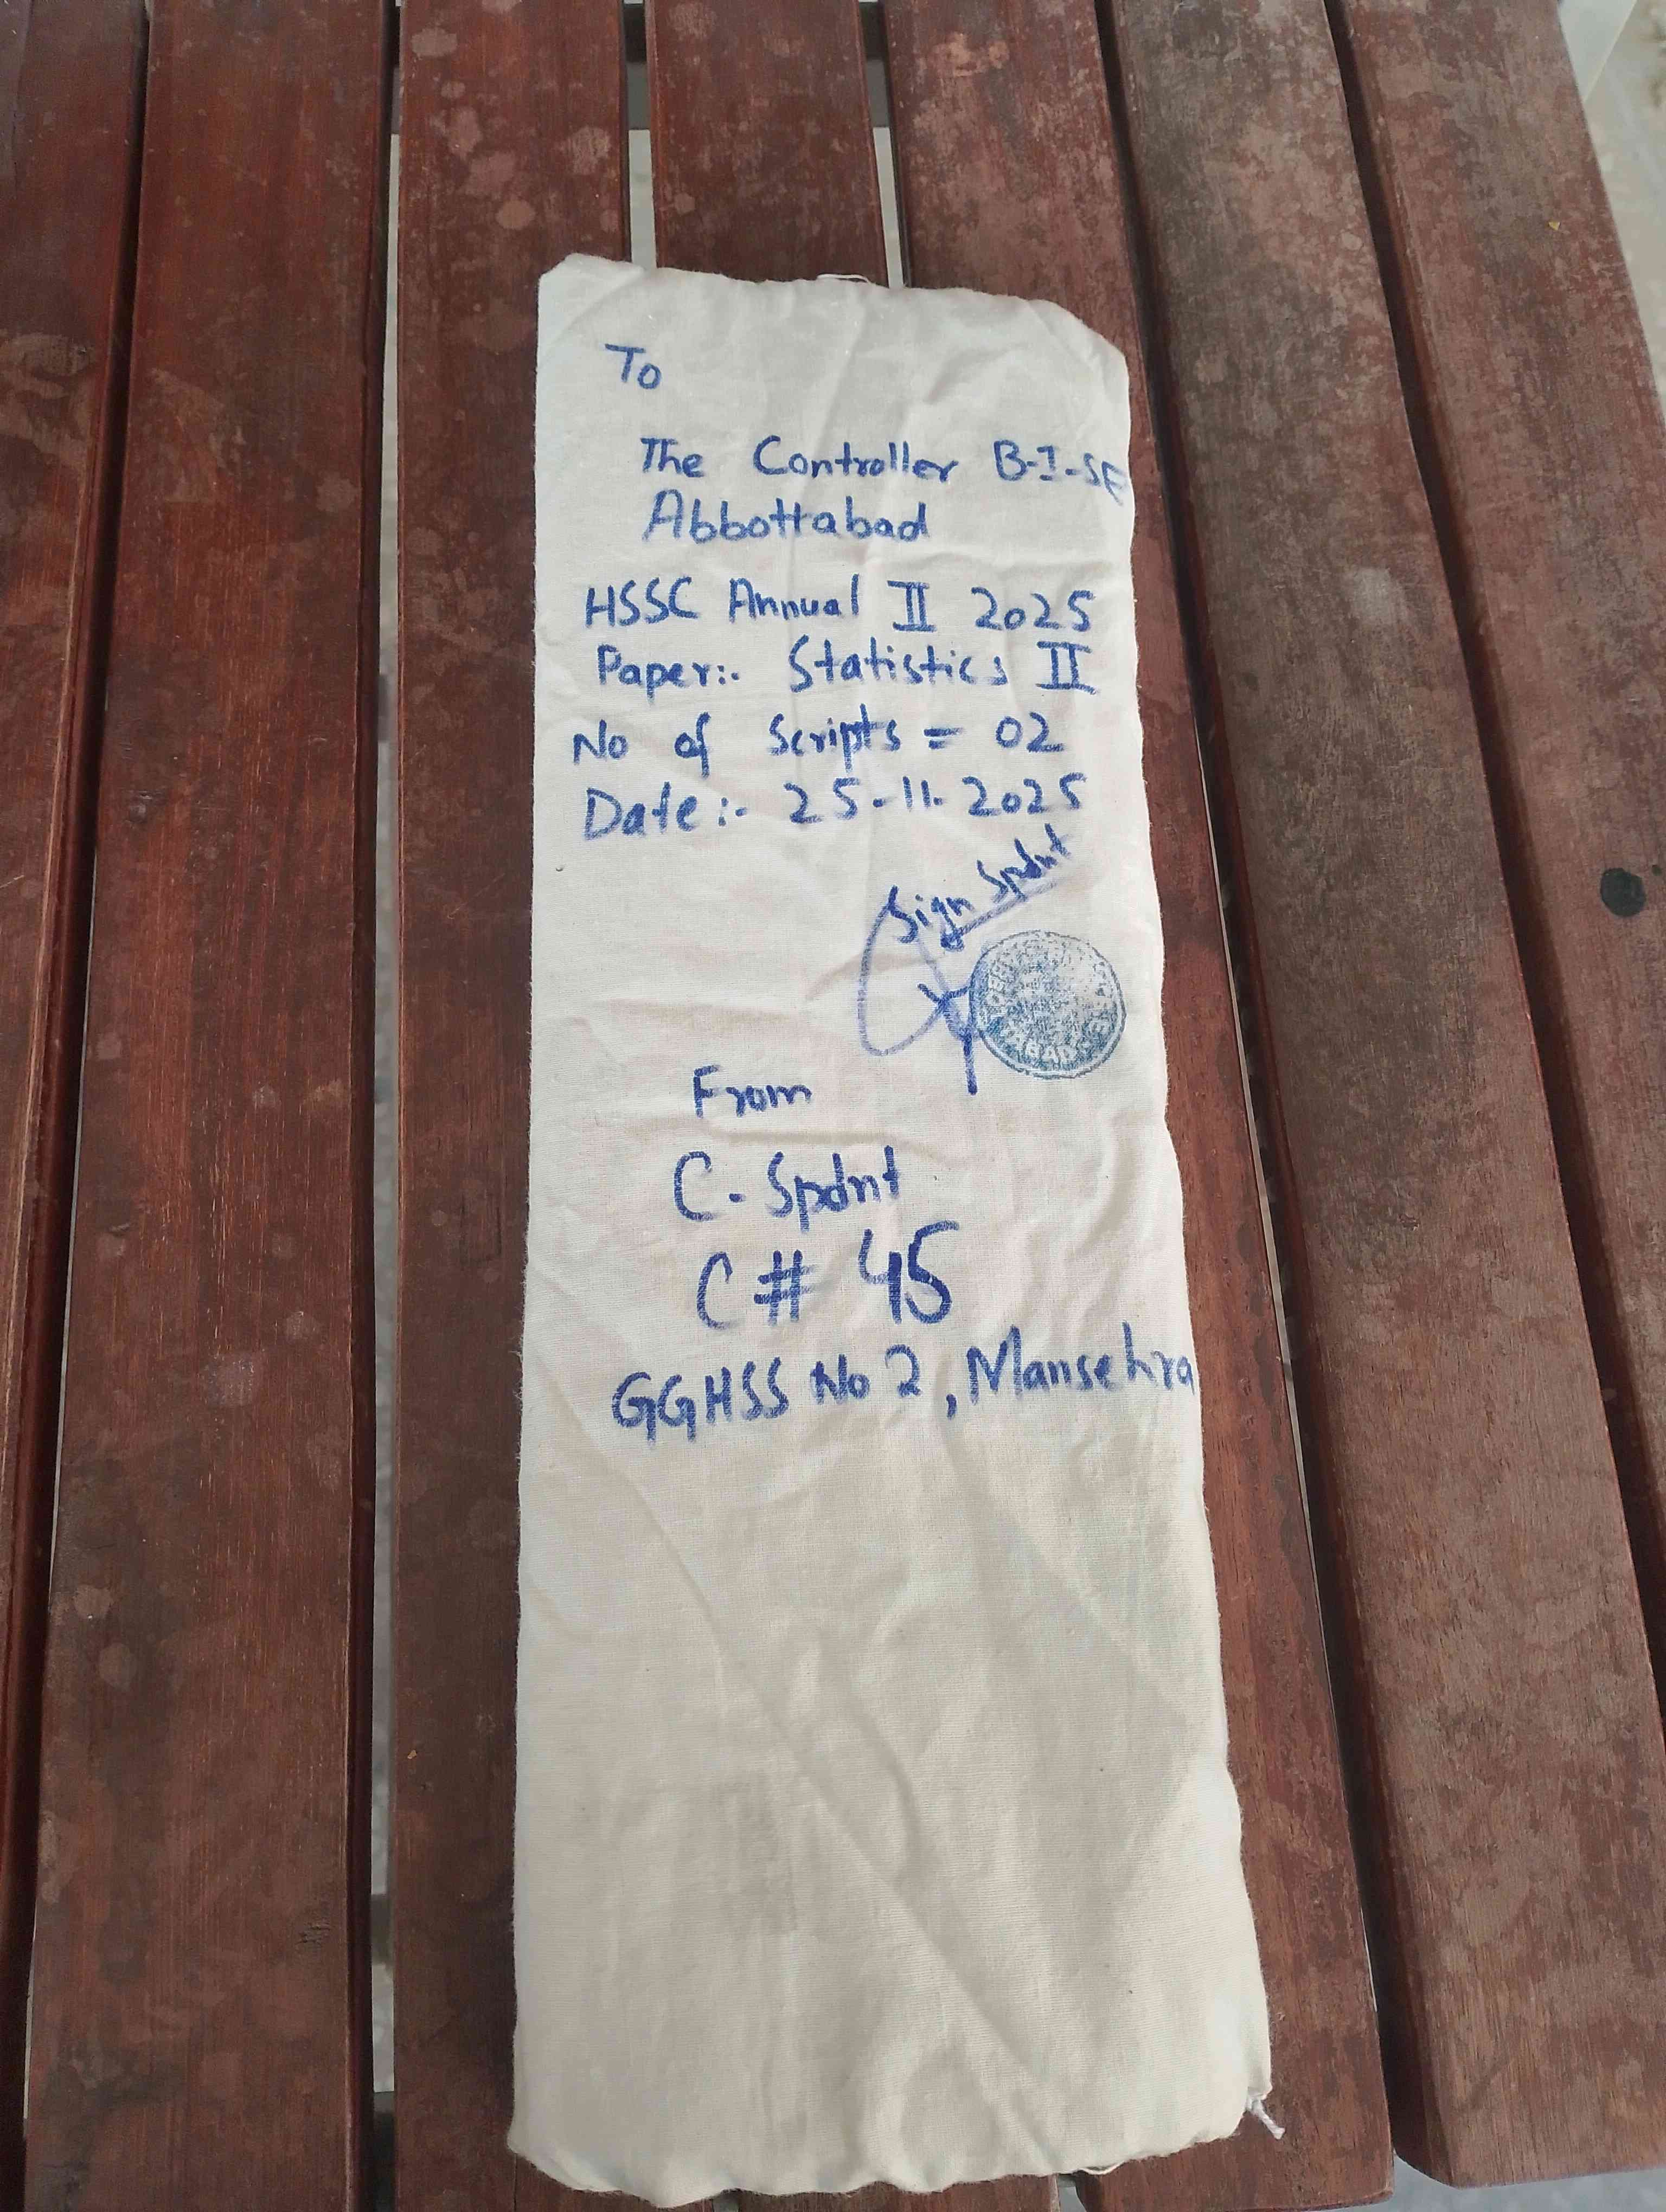 To
The Controller B-I-SE
Abbottabad
HSSC Annual II 2025
Paper:- Statistics II
No of Scripts = 02
Date:- 25-11-2025
Sign Spdnt
From
C-Spdnt
C# 45
GGHSS No 2, Mansehra